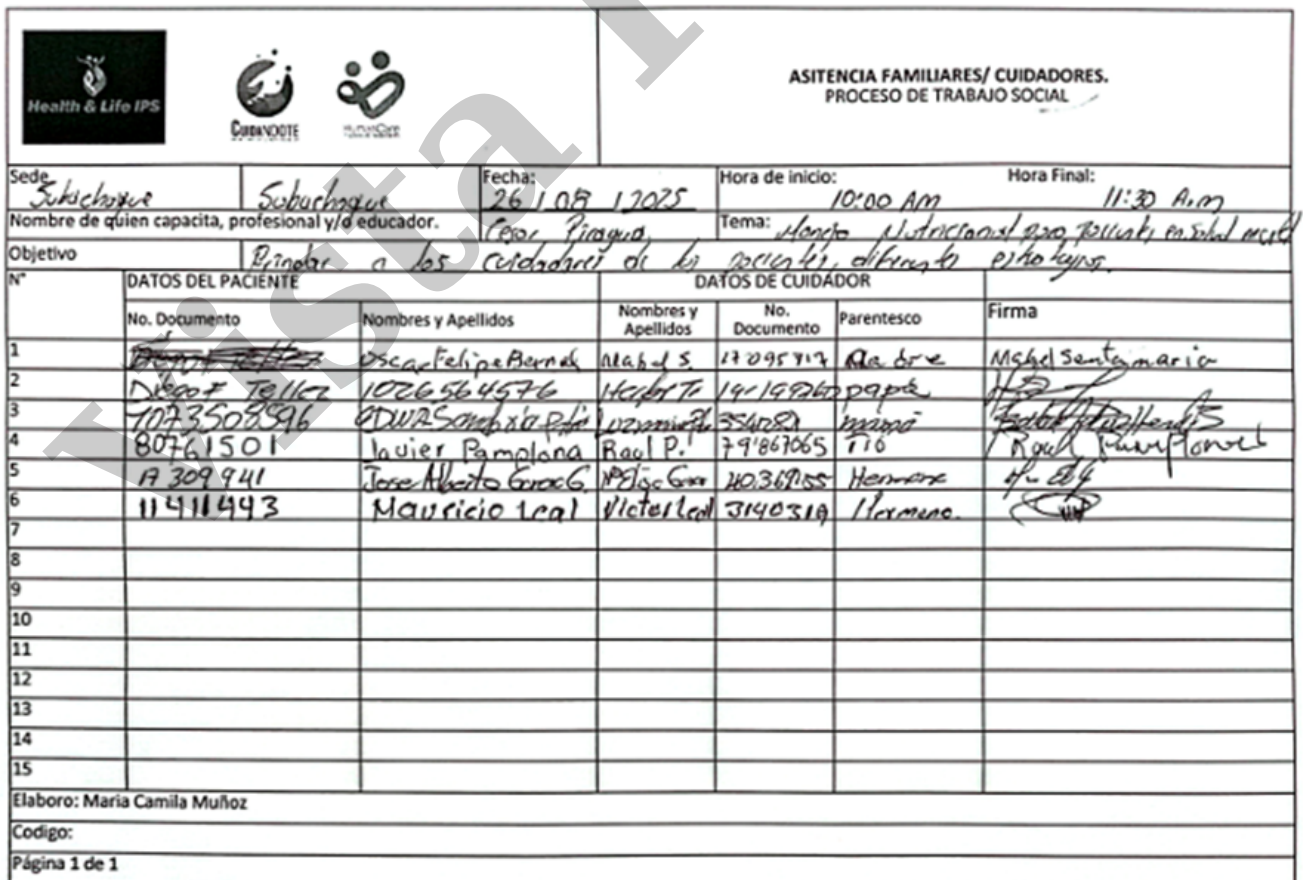 Health & Life IPS
CUIDANDOTE
HumanCare
ASITENCIA FAMILIARES/ CUIDADORES.
PROCESO DE TRABAJO SOCIAL
Sede Subachoque Subachoque Fecha: 26 / 08 / 2025 Hora de inicio: 10:00 AM Hora Final: 11:30 A.m
Nombre de quien capacita, profesional y/o educador. Cesar Piragua Tema: Manejo Nutricional para pacientes en salud mental
Objetivo Brindar a los cuidadores de los pacientes, diferentes
N° DATOS DEL PACIENTE DATOS DE CUIDADOR
No. Documento Nombres y Apellidos Nombres y Apellidos No. Documento Parentesco Firma
1 Oscar Felipe Bernal Mabel S. Madre Mabel Santamaria
2 Diego F Tellez 1026564576 papá
3 1073508596 mamá
4 80761501 Javier Pamplona Raul P. 79'867065 Tio Raul Pamplona
5 17309941 Jose Alberto Hermana
6 11411443 Mauricio Leal Victor Leal 3140319 Hermano.
7
8
9
10
11
12
13
14
15
Elaboro: Maria Camila Muñoz
Codigo:
Página 1 de 1
Vista